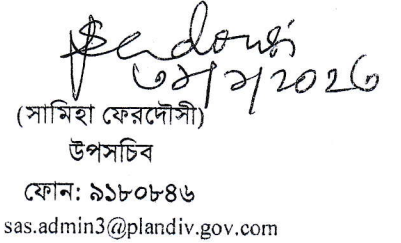 (সামিহা ফেরদৌসী)
উপসচিব
ফোন: ৯১৮০৮৪৬
sas.admin3@plandiv.gov.com